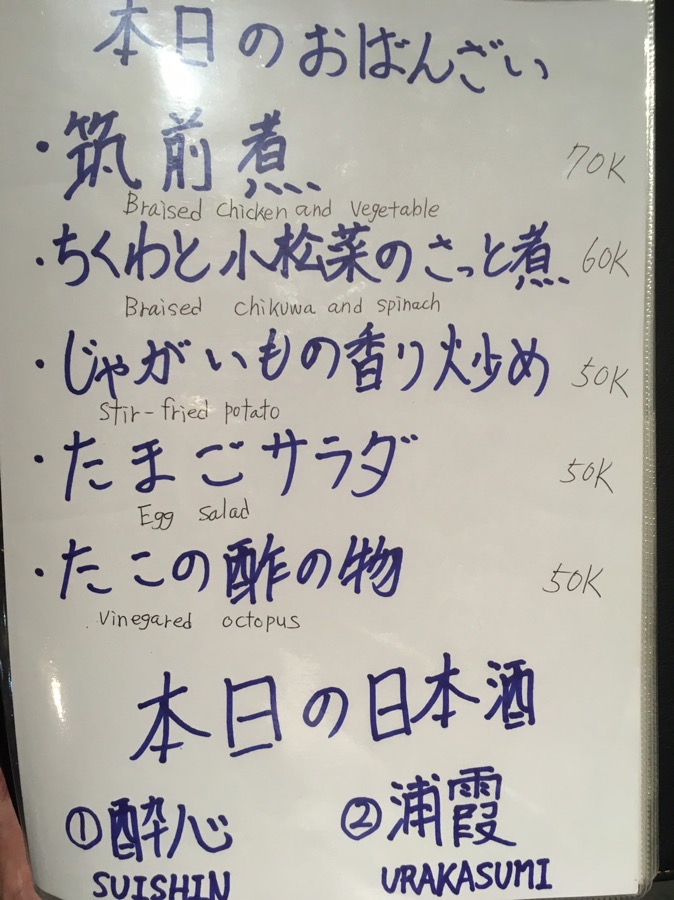 本日のおばんざい
・筑前煮 70K
Braised chicken and vegetable
・ちくわと小松菜のさっと煮 60K
Braised chikuwa and spinach
・じゃがいもの香り炒め 50K
Stir-fried potato
・たまごサラダ 50K
Egg salad
・たこの酢の物 50K
Vinegared octopus
本日の日本酒
①酔心 ②浦霞
SUISHIN URAKASUMI